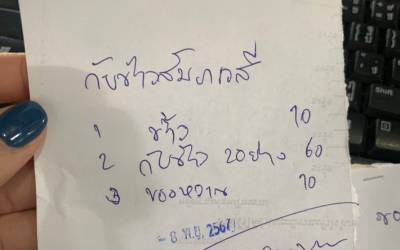 กับข้าวสัมภเวสี
1 ข้าว 10
2 กับข้าว 2อย่าง 60
3 ของหวาน 10
- 8 พ.ย. 2567